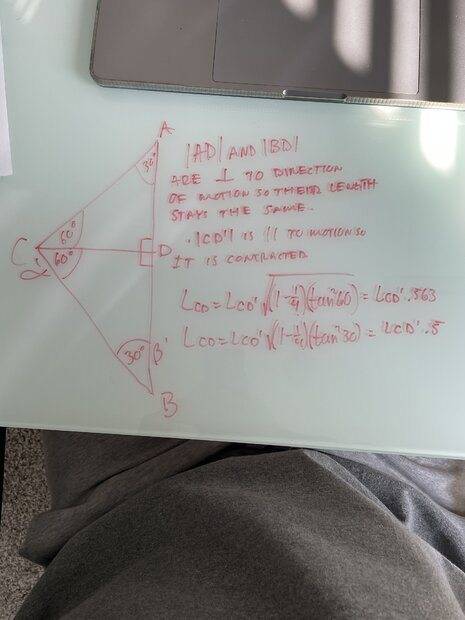 A
30°
|AD| AND |BD|
ARE ⊥ TO DIRECTION
OF MOTION SO THEIR LENGTH
STAYS THE SAME.
60°
C
D
α'
60°
|CD'| IS || TO MOTION SO
IT IS CONTRACTED
L_CD = L_CD' √(1-1/4)(tan²60) = L_CD' .563
30°
B'
L_CD = L_CD' √(1-1/4)(tan²30) = L_CD' .5
B